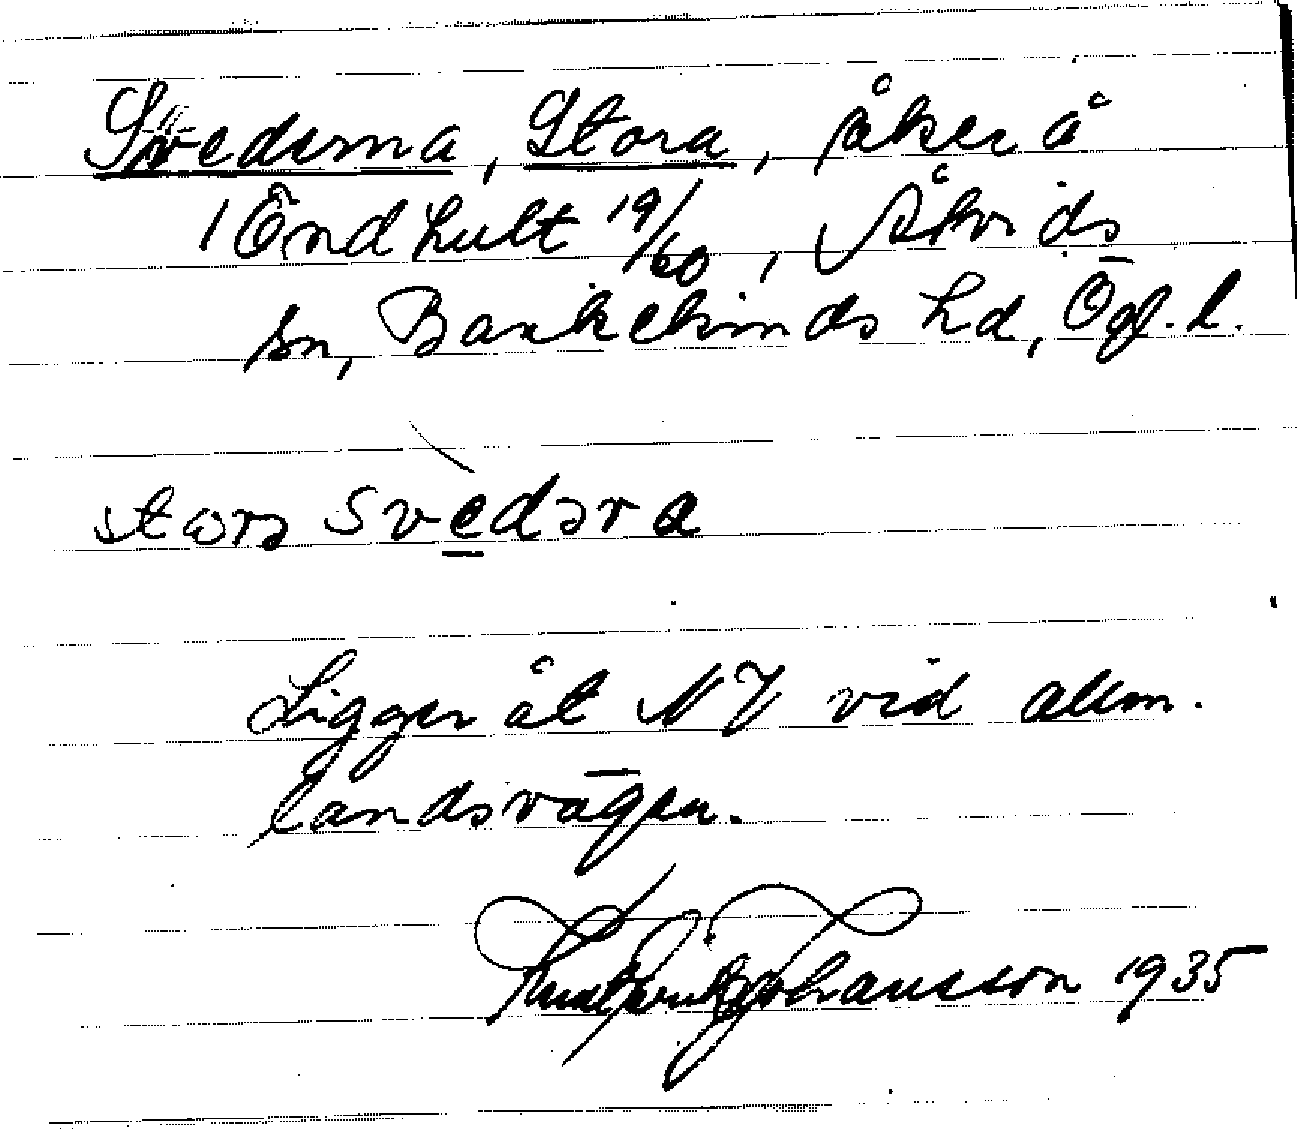 Svederna, Stora, åker å
1 Öndhult 19/60, Åtvids
sn, Bankekinds hd, Ögl.l.
storə svedəra
Ligger åt NV vid allm.
landsvägen.
Johansson 1935